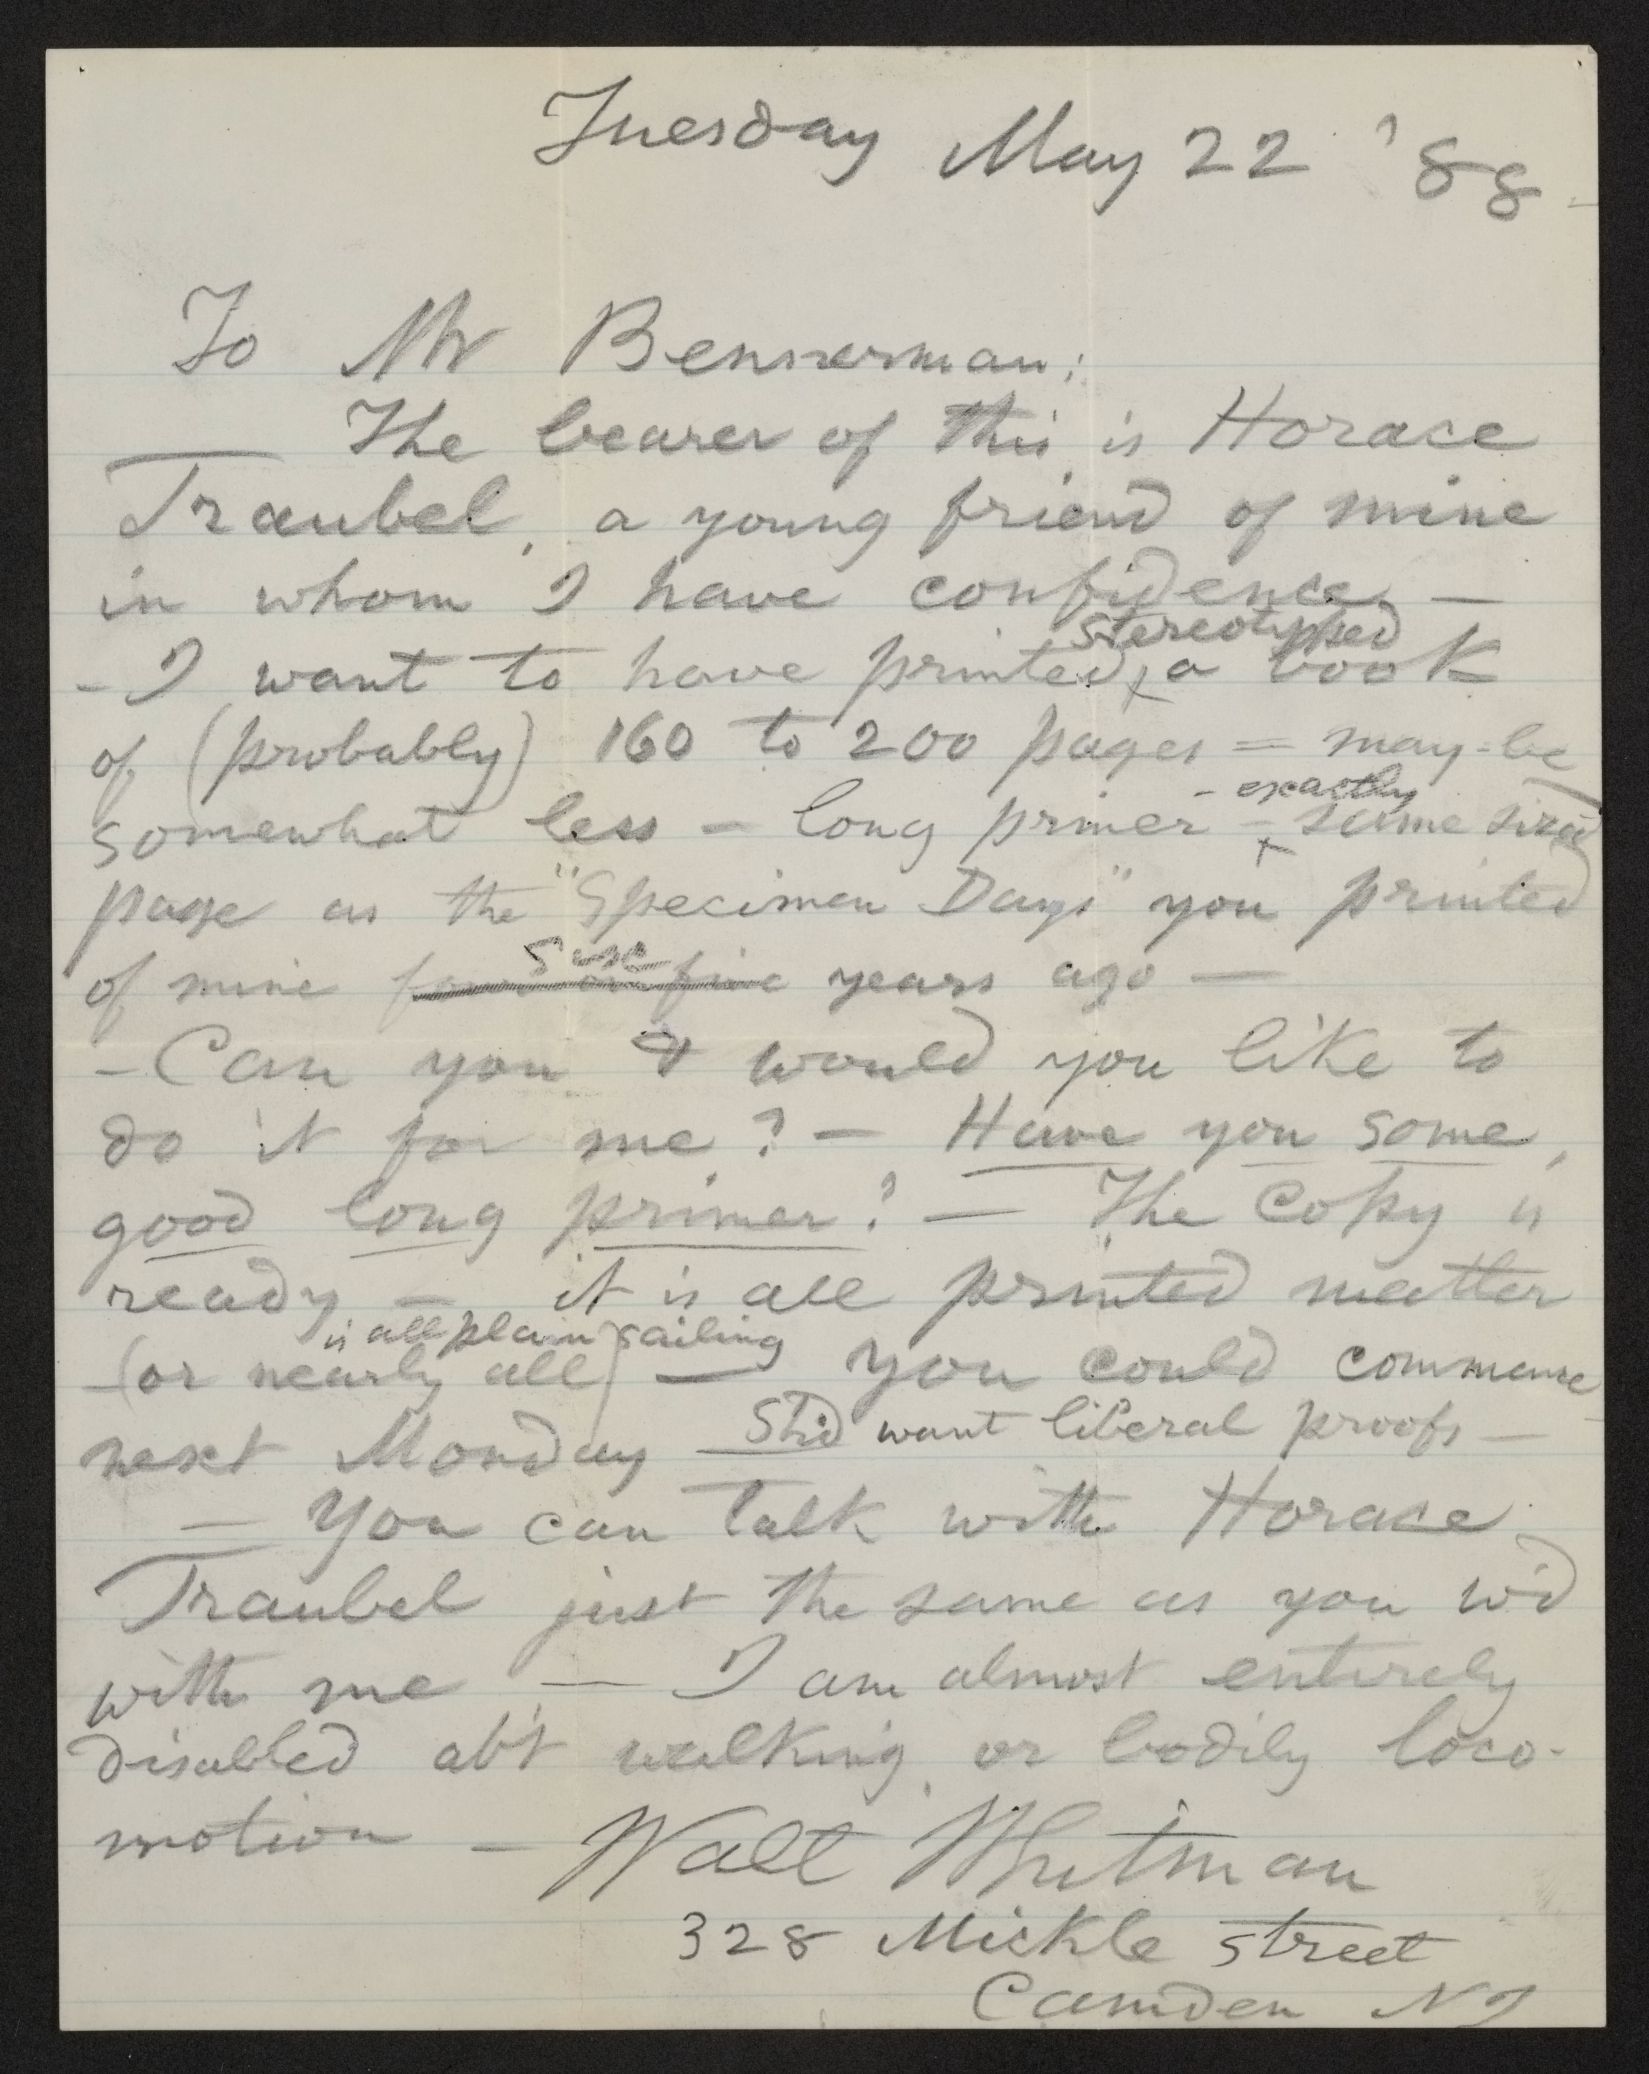 Tuesday May 22 '88
To Mr Bennerman:
The bearer of this is Horace
Traubel, a young friend of mine
in whom I have confidence —
stereotyped
- I want to have printed ^ a book
of (probably) 160 to 200 pages = may-be
- exactly
somewhat less - long primer - ^ same sized
page as the "Specimen Days" you printed
six
of mine four or five years ago —
- Can you & would you like to
do it for me? - Have you some
good long primer? — The copy is
ready — it is all printed matter
is all plain sailing
(or nearly all) — You could commence
Sh'd want liberal proofs —
next Monday —
— You can talk with Horace
Traubel just the same as you w'd
with me — I am almost entirely
disabled ab't walking or bodily loco-
motion — Walt Whitman
328 Mickle street
Camden NJ